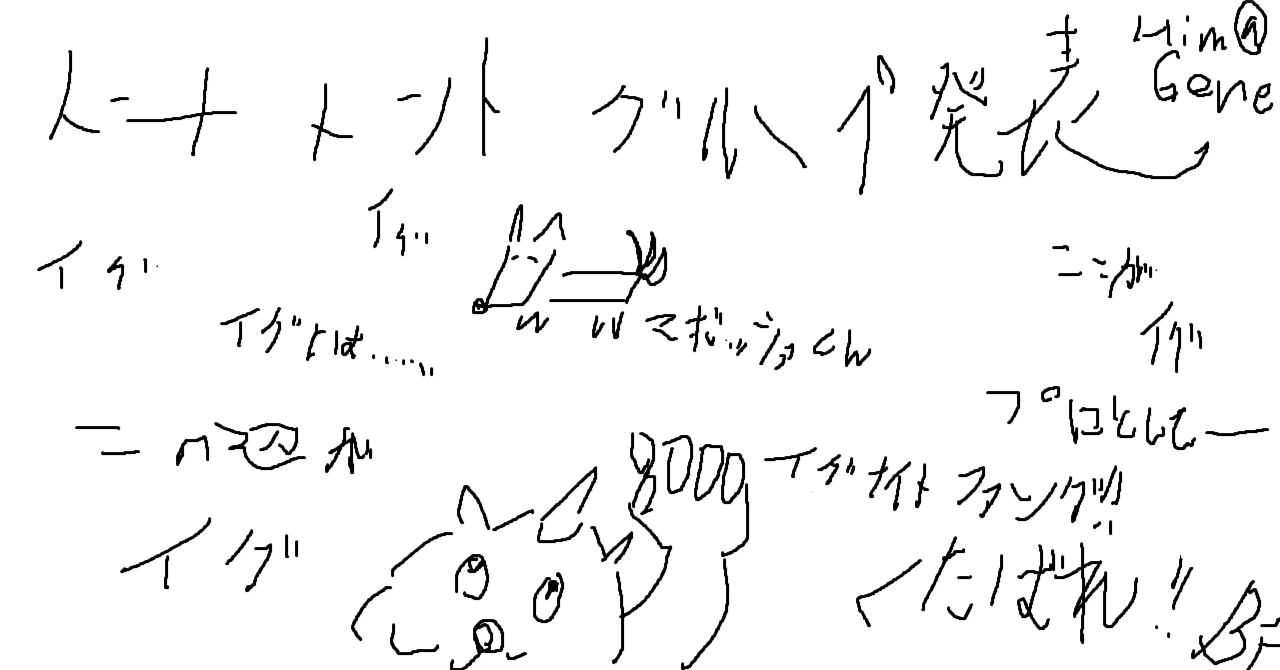 トーナメント グループ発表
Him@
Gene
イグ
イグ
イグとは……
マポッシァくん
ここが
イグ
プロとしてー
ニ
が
イグ
8000
イグナイトファング!!
くたばれ!!